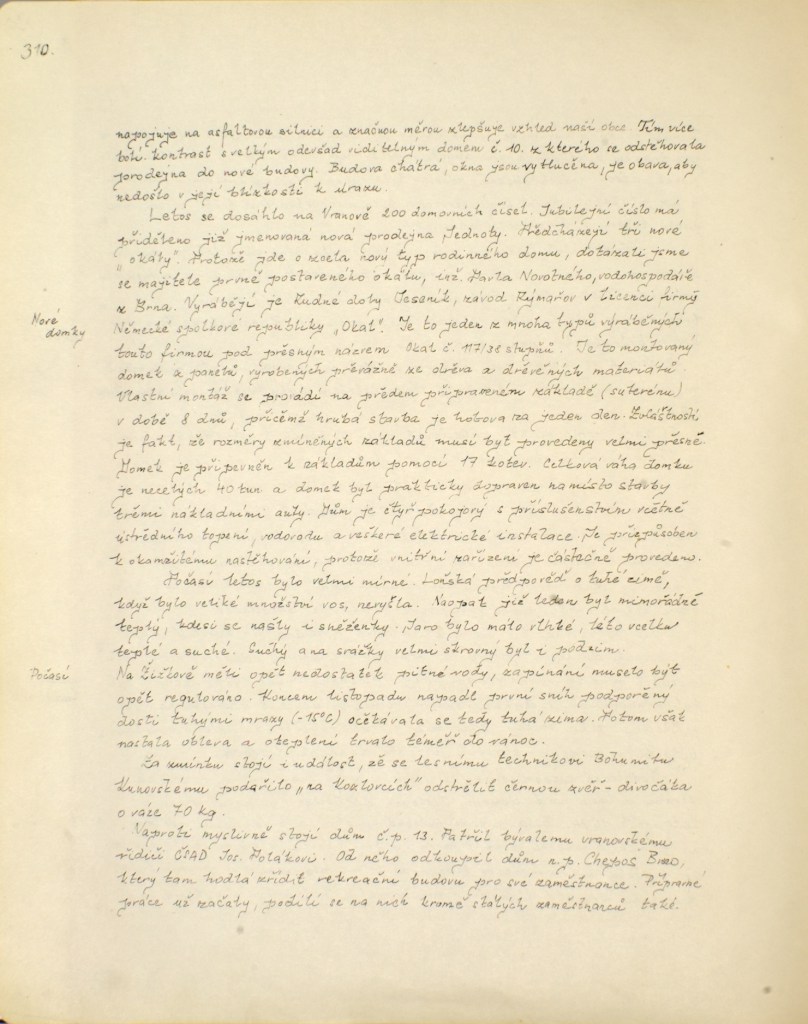 310.
napojuje na asfaltovou silnici a značnou měrou zlepšuje vzhled naší obce. Tím více
bolí kontrast s velkým odevšad viditelným domem č. 10. z kterého se odstěhovala
prodejna do nové budovy. Budova chátrá, okna jsou vytlučena, je obava, aby
nedošlo v její blízkosti k úrazu.
Letos se dosáhlo na Vranově 200 domovních čísel. Jubilejní číslo má
přiděleno již jmenovaná nová prodejna Jednoty. Předcházejí tři nové
"okály". Protože jde o zcela nový typ rodinného domu, dotázali jsme
se majitele prvně postaveného okálu, inž. Pavla Novotného, vodohospodáře
z Brna. Vyrábějí je Rudné doly Jeseník, závod Rýmařov v licenci firmy
Nové
domky
Německé spolkové republiky „Okal". Je to jeden z mnoha typů výráběných
touto firmou pod přesným názvem Okal č. 117/38 stupňů. Je to montovaný
domek z panelů, vyrobených převážně ze dřeva a dřevěných materiálů
Vlastní montáž se provádí na předem připraveném základě (suterénu)
v době 8 dnů, přičemž hrubá stavba je hotova za jeden den. Zvláštností
je fakt, že rozměry zmíněných základů musí být provedeny velmi přesně.
Domek je připevněn k základům pomocí 17 kotev. Celková váha domku
je necelých 40 tun a domek byl prakticky dopraven na místo stavby
třemi nákladními auty. Dům je čtyřpokojový s příslušenstvím včetně
ústředního topení, vodovodu a veškeré elektrické instalace. Je přizpůsoben
k okamžitému nastěhování, protože vnitřní zařízení je částečně provedeno.
Počasí letos bylo velmi mírné. Loňská předpověď o tuhé zimě,
když bylo veliké množství vos, nevyšla. Naopak již leden byl mimořádně
teplý, kdesi se našly i sněženky. Jaro bylo málo vlhké, léto vcelku
teplé a suché. Suchý a na srážky velmi skrovný byl i podzim.
Počasí
Na Žižkově měli opět nedostatek pitné vody, zapínání muselo být
opět regulováno. Koncem listopadu napadl první sníh podpořený
dosti tuhými mrazy (-15°C) očekávala se tedy tuhá zima. Potom však
nastala obleva a oteplení trvalo téměř do vánoc.
Za zmínku stojí i událost, že se lesnímu technikovi Bohumilu
Kunovskému podařilo „na Kozlovcích" odstřelit černou zvěř - divočáka
o váze 70 kg.
Naproti myslivně stojí dům č.p. 13. Patřil bývalému vranovskému
řidiči ČSAD Jos. Polákovi. Od něho odkoupil dům n.p. Chepos Brno,
který tam hodlá zřídit rekreační budovu pro své zaměstnance. Přípravné
práce už začaly, podílí se na nich kromě stálých zaměstnanců také